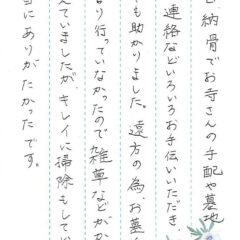 納骨でお寺さんの手配や墓地
連絡などいろいろお手伝いいただき
も助かりました。遠方の為、お墓
り行っていなかったので雑草などが
えていましたが、キレイに掃除もして
にありがたかったです。